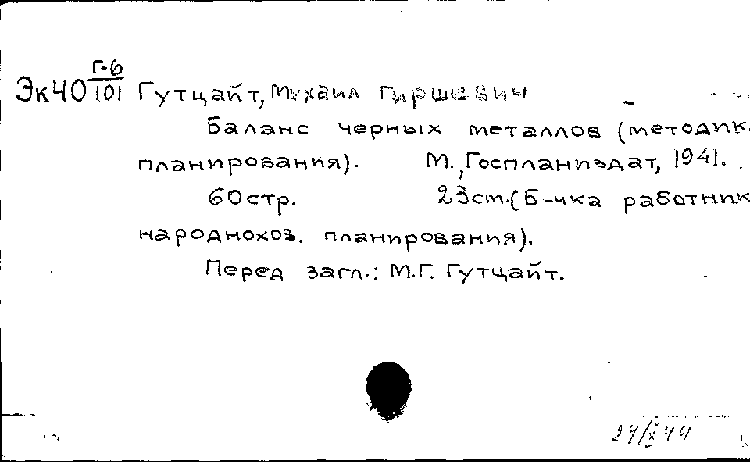 Г-6
Эк40 101 Гутцайт, Михаил Гиршевич
Баланс черных металлов (методик
планирования). М., Госпланиздат, 1941.
60стр. 23см.(Б-чка работник
народнохоз. планирования).
Перед загл.: М.Г. Гутцайт.